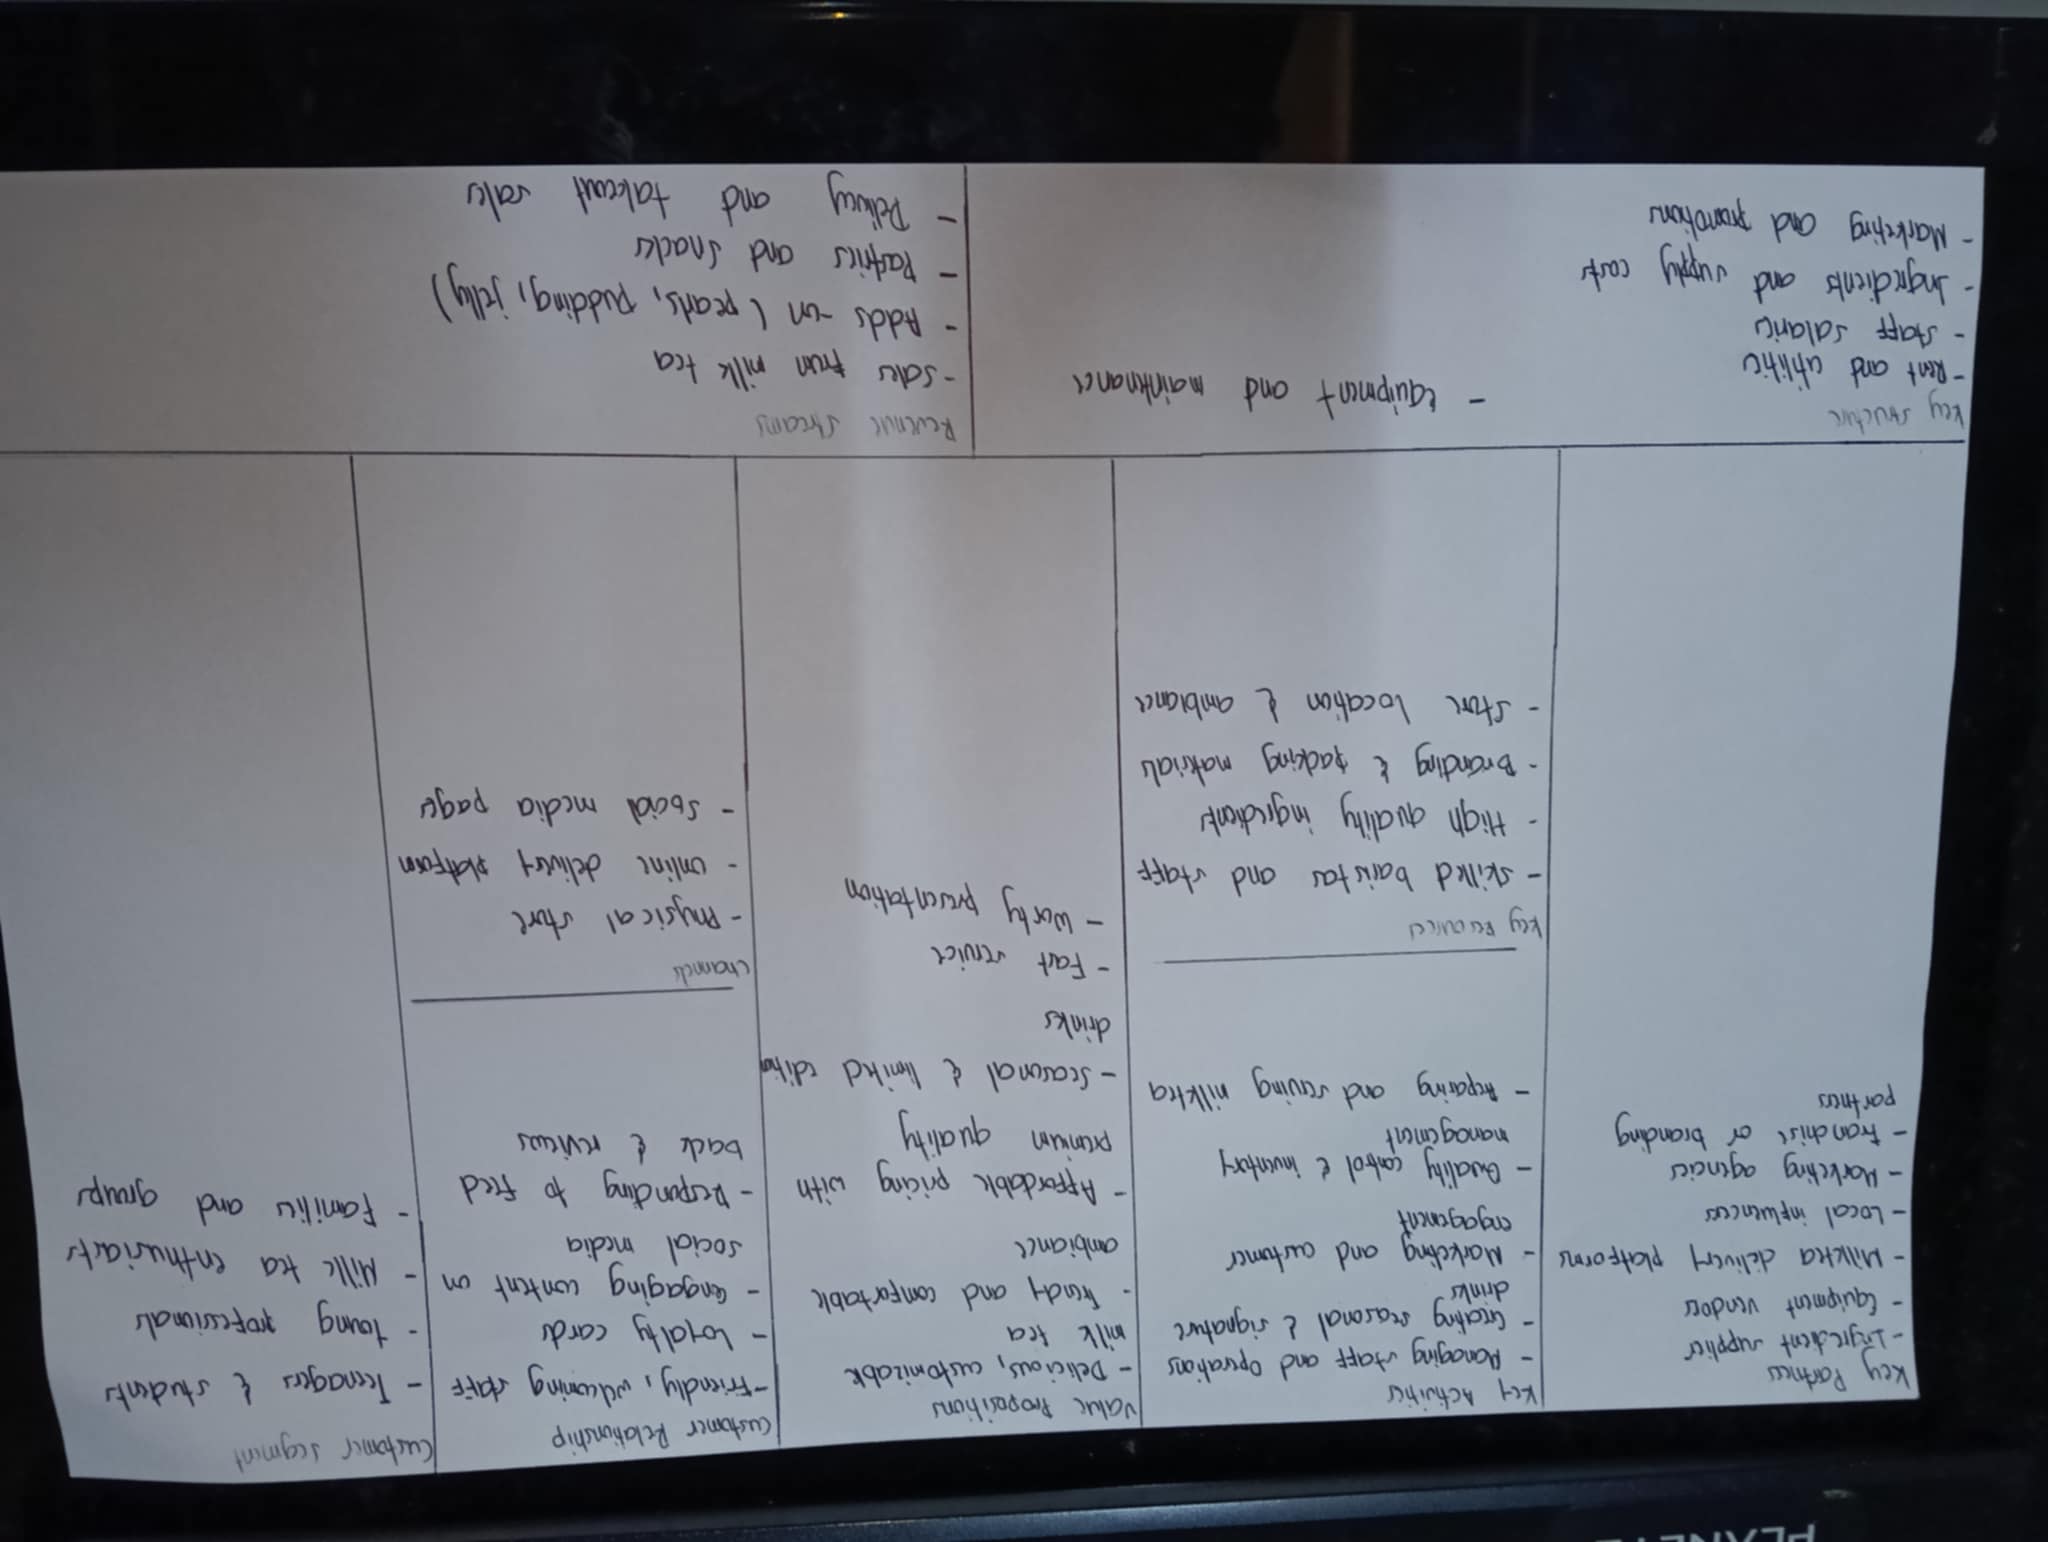 Key Partners
- Ingredient supplier
- Equipment vendors
- Milktea delivery platforms
- Local influencers
- Marketing agencies
- Franchise or branding
partners
Key Activities
- Managing staff and Operations
- Creating seasonal & signature
drinks
- Marketing and customer
engagement
- Quality control & inventory
management
- Preparing and serving milktea
Key Resources
- Skilled baristas and staff
- High quality ingredients
- Branding & packing materials
- Store location & ambiance
Value Propositions
- Delicious, customizable
milk tea
- Trendy and comfortable
ambiance
- Affordable pricing with
premium quality
- Seasonal & limited edition
drinks
- Fast service
- Worty presentation
Customer Relationship
- Friendly, welcoming staff
- Loyalty cards
- engaging content on
social media
- Responding to feed
back & reviews
Channels
- Physical store
- online delivery platform
- Social media pages
Customer Segment
- Teenagers & students
- Young professionals
- Milk tea enthusiasts
- Families and groups
Key structure
- Rent and utilities
- Staff salaries
- Ingredients and supply costs
- Marketing and promotions
- Equipment and maintenance
Revenue Streams
- Sales from milk tea
- Adds-on (pearls, pudding, jelly)
- Pastries and Snacks
- Delivery and takeout sales